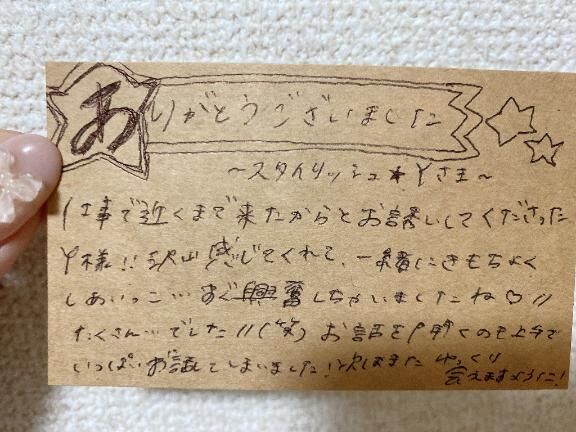 ありがとうございました
～スタイリッシュ★Yさま～
仕事で近くまで来たからとお誘いしてくださった
Y様!! 沢山感じてくれて、一緒にきもちよく
しあいっこ… すぐ興奮しちゃいましたね♡〃
たくさん…でした〃(笑) お話を聞くのも上手で
いっぱいお話してしまいました！次はまたゆっくり
会えますように！